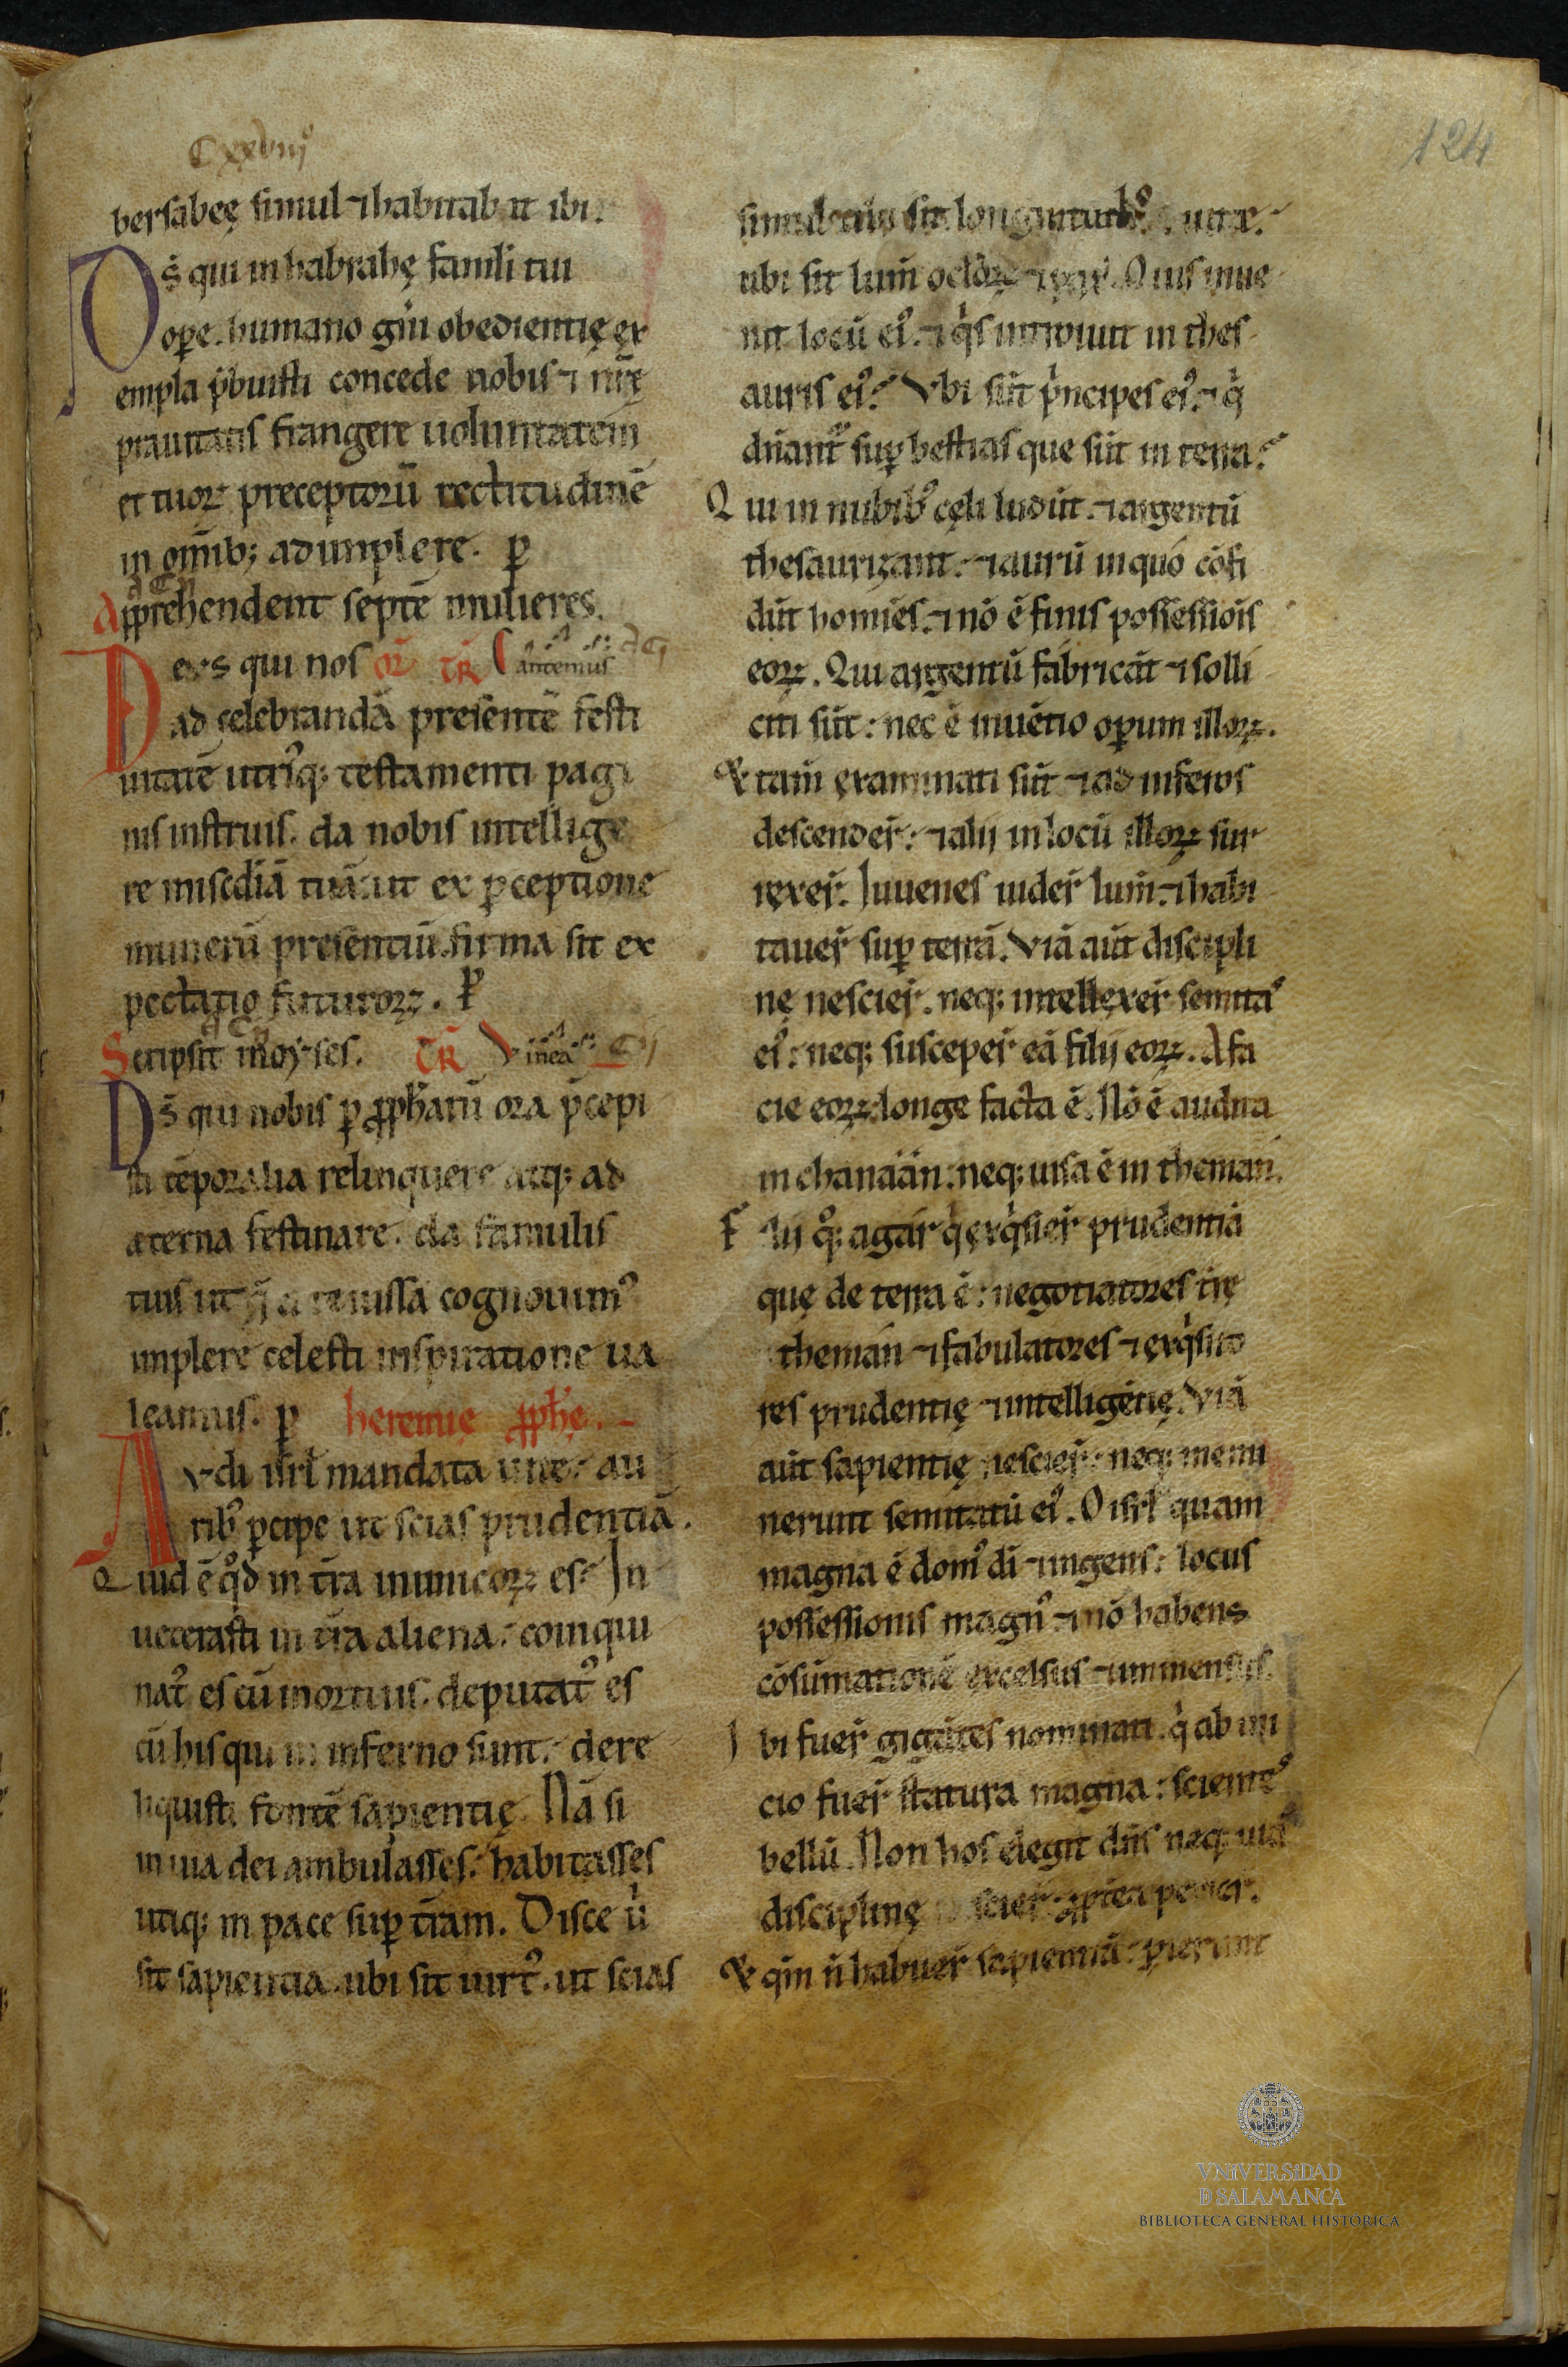 Cxxviijº
124
bersabeę simul ⁊ habitabit ibi.
Ds̄ qui in habrahę famuli tui
ope. humano gn̄i obedientię ex
empla p̄buisti concede nobis ⁊ nr̄ę
prauitatis frangere uoluntatem
et tuoꝝ preceptorū rectitudinē
in om̄ib; adimplere. ꝑ
Apprehendent septē mulieres.
Deus qui nos or̄ TR̄ Cantemus
ad celebrandā presentē festi
uitatē utriq; testamenti pagi
nis instruis. da nobis intellige
re misc̄diā tuā: ut ex ꝑceptione
munerū presentiū. firma sit ex
pectatio futuroꝝ. P
Scripsit moyses. TR̄ Vinea
Ds̄ qui nobis ꝑ ꝓph̄arū ora p̄cepi
sti tēporalia relinquere atq; ad
æterna festinare. da famulis
tuis ut q̄ a te iussa cognouimꝰ
implere celesti inspiratione ua
leamus. ꝑ heremię ꝓph̄ę.
Audi isrł mandata uite: au
ribꝰ ꝑcipe ut scias prudentiā.
Quid ē qͦd in tr̄a inimicoꝝ es? In
ueterasti in tr̄a aliena: coinqui
natꝰ es cū mortuis. deputatꝰ es
cū his qui in inferno sunt: dere
liquisti fontē sapientię. Nā si
in uia dei ambulasses: habitasses
utiq; in pace suꝑ tr̄am. Disce ub̓
sit sapientia. ubi sit uirtꝰ. ut scias
simul ubi sit longiturnitas uitæ.
ubi sit lum̄ ocłoꝝ ⁊ pax. Quis inue
nit locū eiꝰ. ⁊ qͥs intrauit in thes
auris eiꝰ? Vbi sūt pͥncipes eiꝰ. ⁊ qͥ
dn̄ant̄ suꝑ bestias que sūt in terra?
Qui in nubibꝰ cęli ludūt. ⁊ argentū
thesaurizant. ⁊ aurū in quo cōfi
dūt homīes. ⁊ nō ē finis possessiōis
eoꝝ. Qui argentū fabricāt ⁊ solli
citi sūt: nec ē inuētio oꝑum illoꝝ.
& tam̄ exanimati sūt ⁊ ad inferos
descender̄: ⁊ alij in locū illoꝝ sur
rexer̄. Iuuenes uider̄ lum̄. ⁊ habi
tauer̄ suꝑ terrā. Viā aūt discipli
nę nescier̄. neq; intellexer̄ semitas
eiꝰ: neq; susceper̄ eā filij eoꝝ. A fa
cie eoꝝ longe facta ē. Nō ē audita
in chanáán: neq; uisa ē in theman.
Filij qͦq; agar qͥ exqͥsier̄ prudentiā
quę de terra ē: negotiatores tr̄ę
theman ⁊ fabulatores ⁊ exqͥsito
res prudentię ⁊ intelligētię. Viā
aūt sapientię nescier̄: neq; memi
nerunt semitatū eiꝰ. O isrł quam
magna ē domꝰ dī ⁊ ingens: locus
possessionis magnꝰ ⁊ nō habens
cōsūmationē excelsus ⁊ immensus.
Ibi fuer̄ gigātes nominati. qͥ ab ini
cio fuer̄ statura magna: scientes
bellū. Non hos elegit dn̄s neq; uiā
disciplinę nescier̄: ꝓpterea ꝑierunt.
& qm̄ n̄ habuer̄ sapientiā: ꝑierunt
VNiVERSiDAD
D SALAMANCA
BIBLIOTECA GENERAL HISTÓRICA